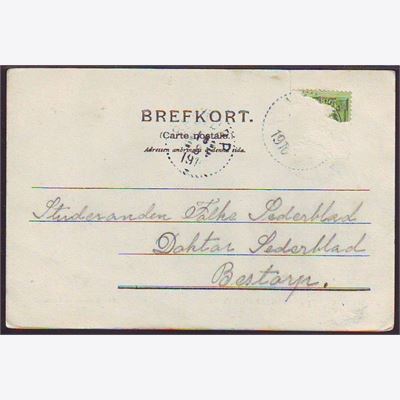 BREFKORT.
(Carte postale.)
Adressen anbringas å denna sida.
191
P
191
Studeranden Falke Sederblad
Doktor Sederblad
Bestorp.